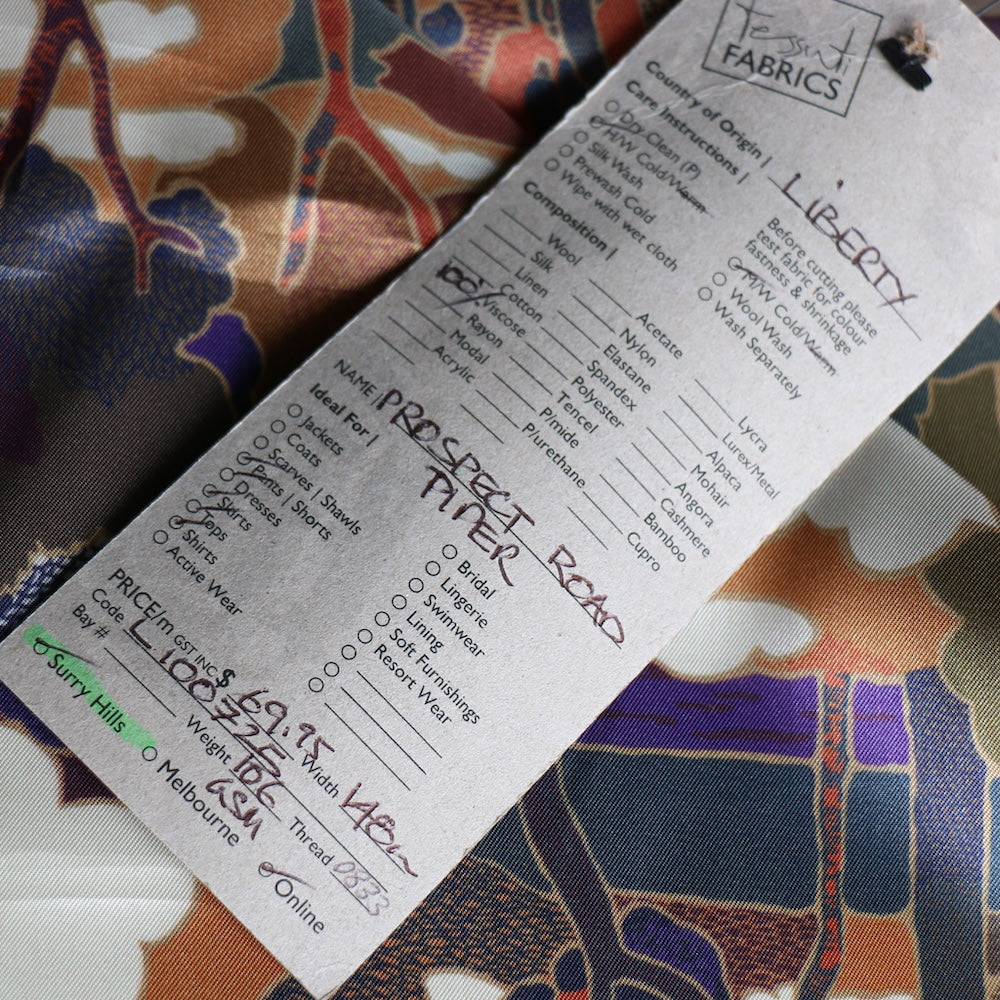 Tessuti
FABRICS
Country of Origin | LiBERTY
Care Instructions |
Dry Clean (P)
H/W Cold/Warm
Silk Wash
Prewash Cold
Wipe with wet cloth
Before cutting please
test fabric for colour
fastness & shrinkage
M/W Cold/Warm
Wool Wash
Wash Separately
Composition |
Wool
Silk
Linen
Cotton
100% Viscose
Rayon
Modal
Acrylic
Acetate
Nylon
Elastane
Spandex
Polyester
Tencel
P/mide
P/urethane
Lycra
Lurex/Metal
Alpaca
Mohair
Angora
Cashmere
Bamboo
Cupro
NAME PROSPECT ROAD
PIPER
Ideal For |
Jackets
Coats
Scarves | Shawls
Pants | Shorts
Dresses
Skirts
Tops
Shirts
Active Wear
Bridal
Lingerie
Swimwear
Lining
Soft Furnishings
Resort Wear
PRICE/m GST INC $ 69.95
Code L100725 Width 148
Bay # Weight 106 Thread 0833
GSM
Surry Hills
Melbourne
Online